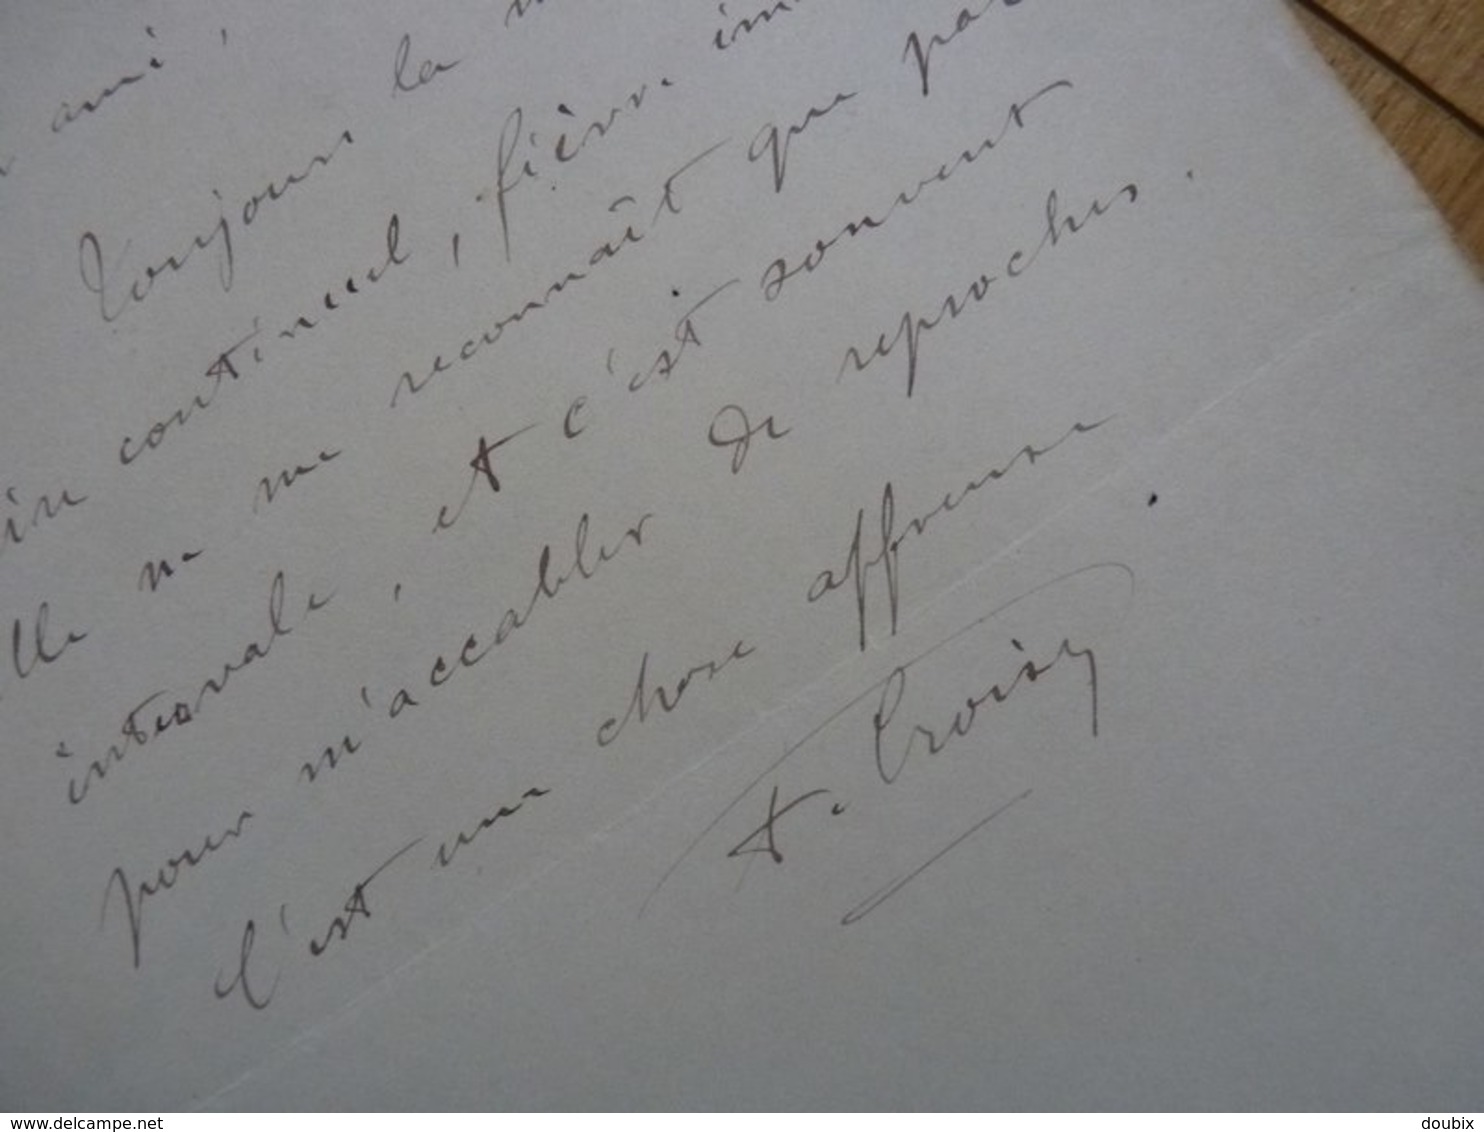 ami,
Toujours la
continuel, fièvre
elle ne me reconnaît que par
intervale, et c'est souvent
pour m'accabler de reproches.
C'est une chose affreuse.
A. Croisy
delcampe.net
doubix